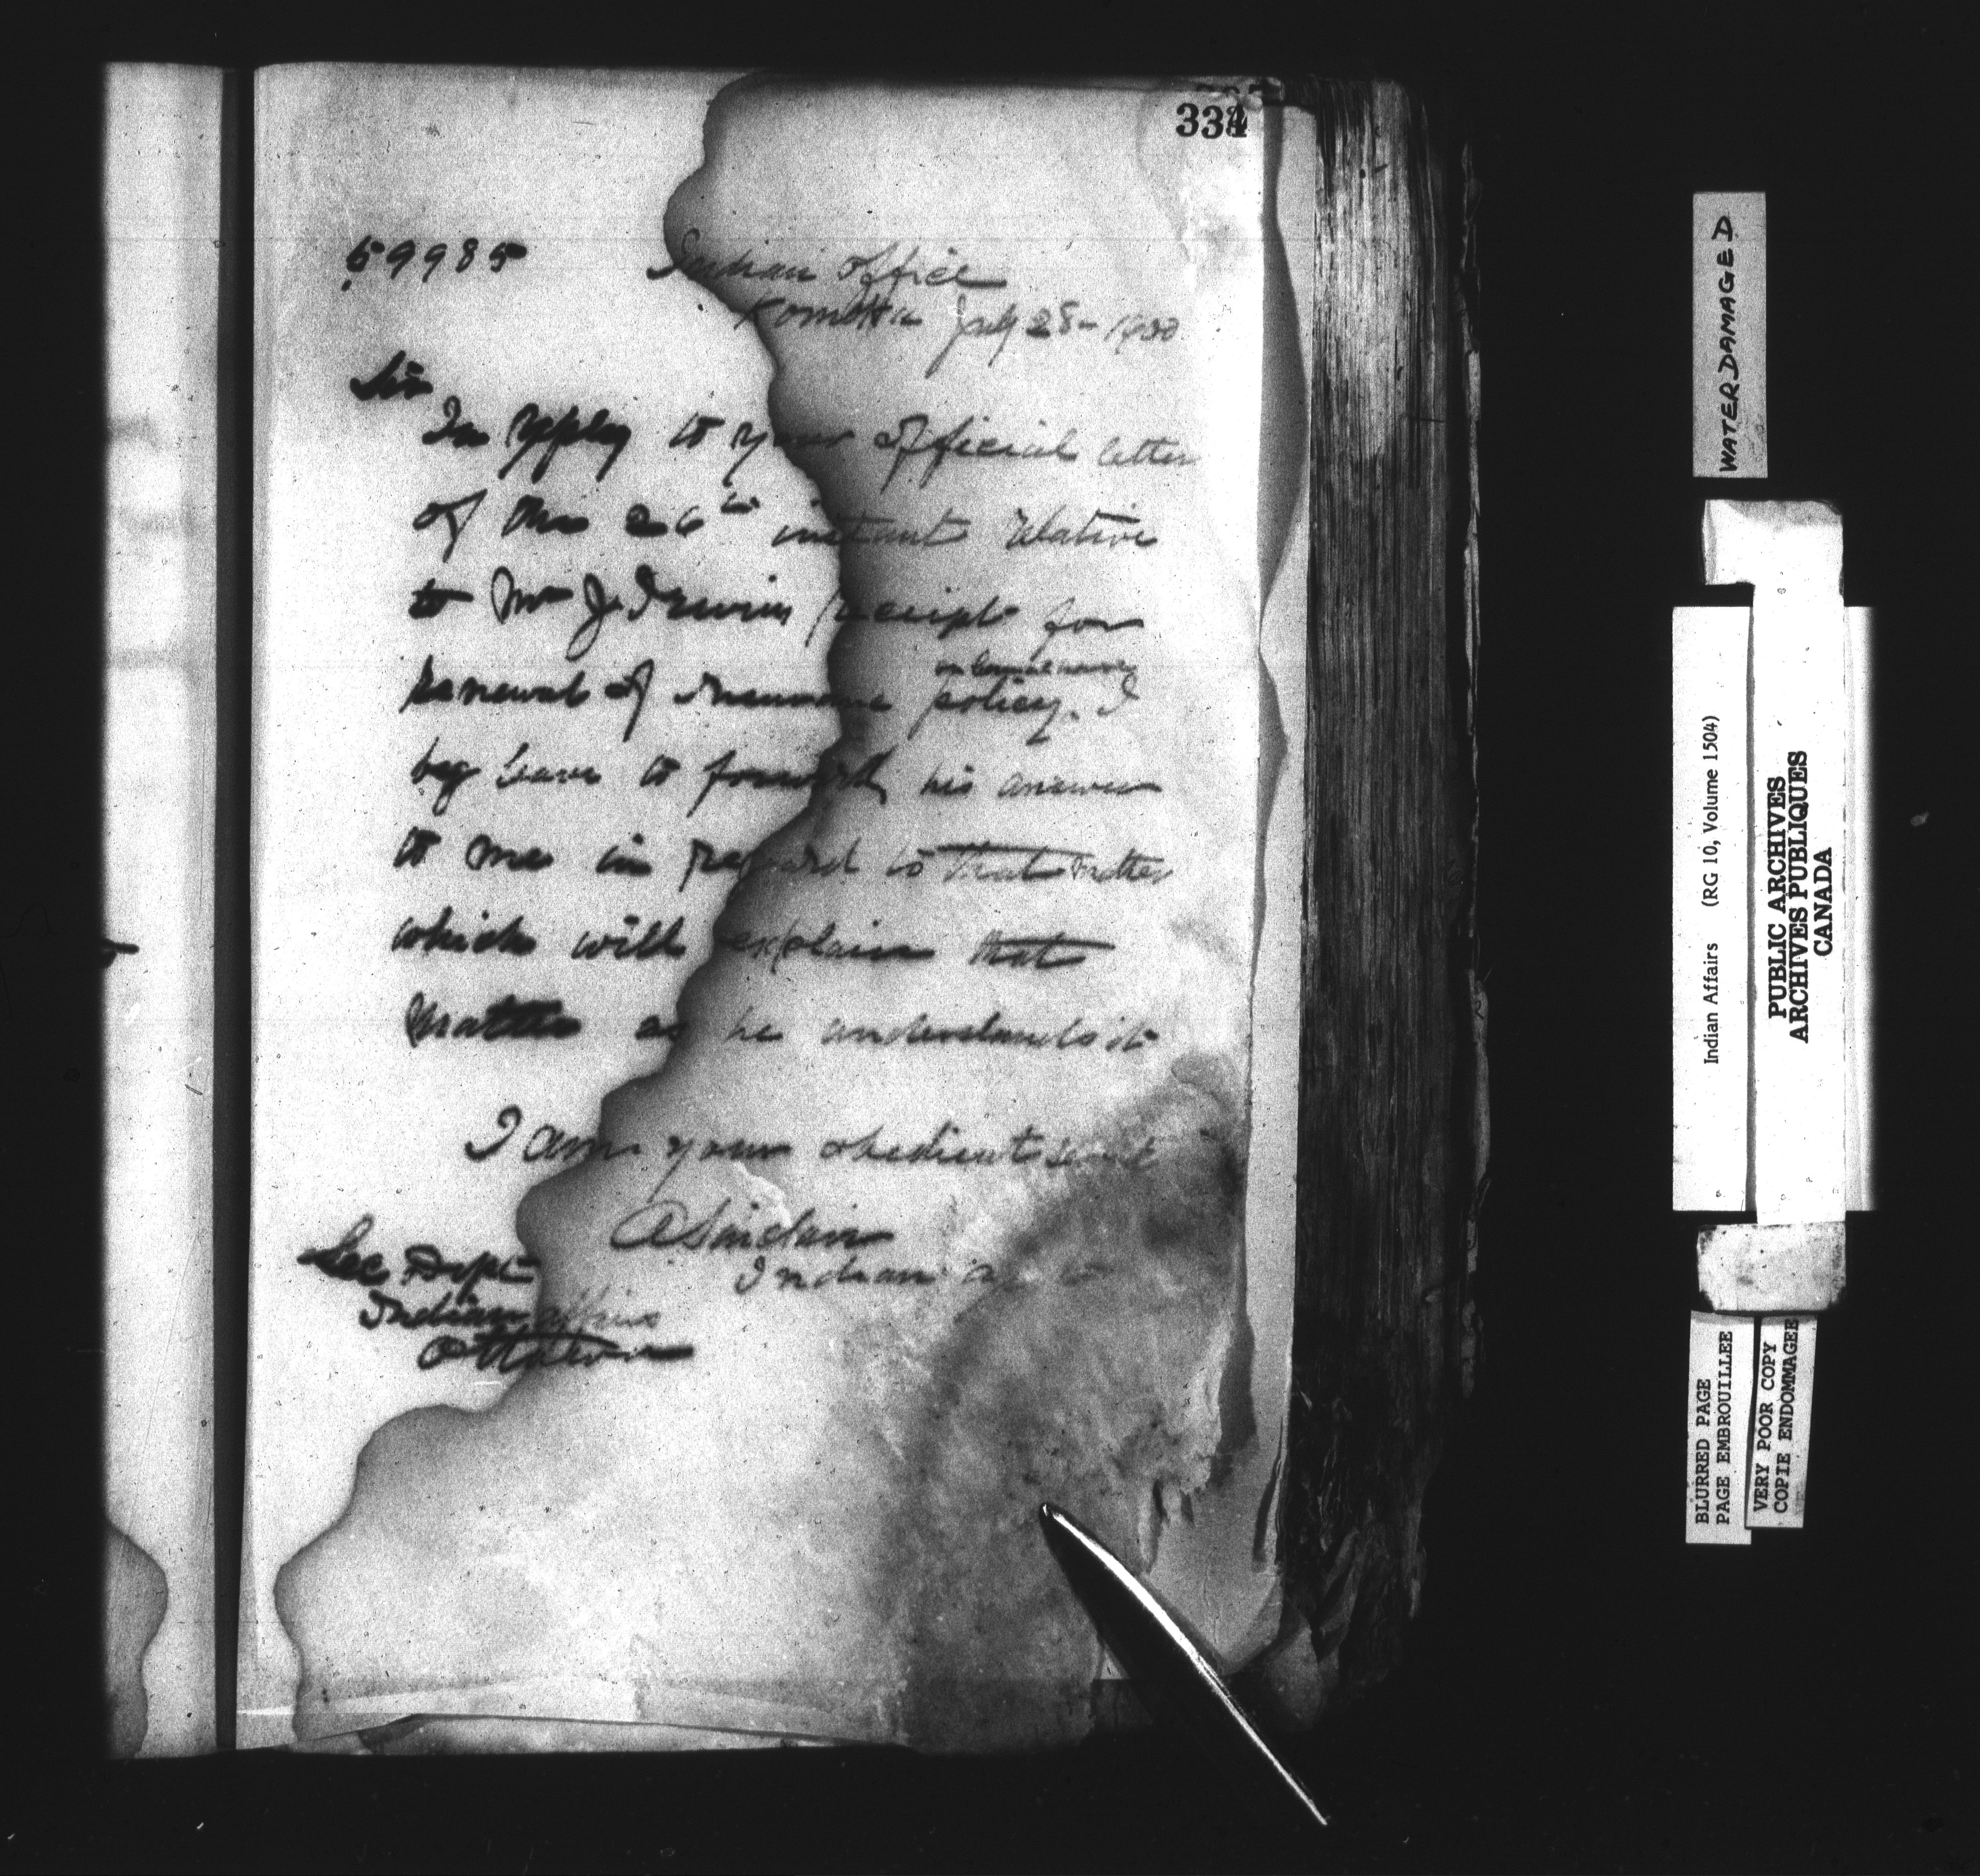 334
59985
Indian Office
July 28 - 1900
Sir
In reply to your official letter
of the 26th instant relative
to Mr J. Irwin receipt for
renewal of Insurance policy. I
beg leave to forward his answer
to me in regard to that matter
which will explain that
matter as he understands it
I am your obedient
A Sinclair
Indian
Sec Dept
Indian affairs
Ottawa
WATER DAMAGED
Indian Affairs (RG 10, Volume 1504)
PUBLIC ARCHIVES
ARCHIVES PUBLIQUES
CANADA
BLURRED PAGE
PAGE EMBROUILLEE
VERY POOR COPY
COPIE ENDOMMAGEE